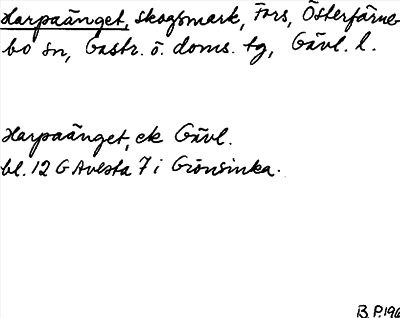 Harpaänget, skogsmark, Fors, Österfärne-
bo sn, Gästr. ö. doms. tg, Gävl. l.
Harpaänget, ek Gävl.
bl. 12 G Avesta 7 i Grönsinka.
B.P. 196